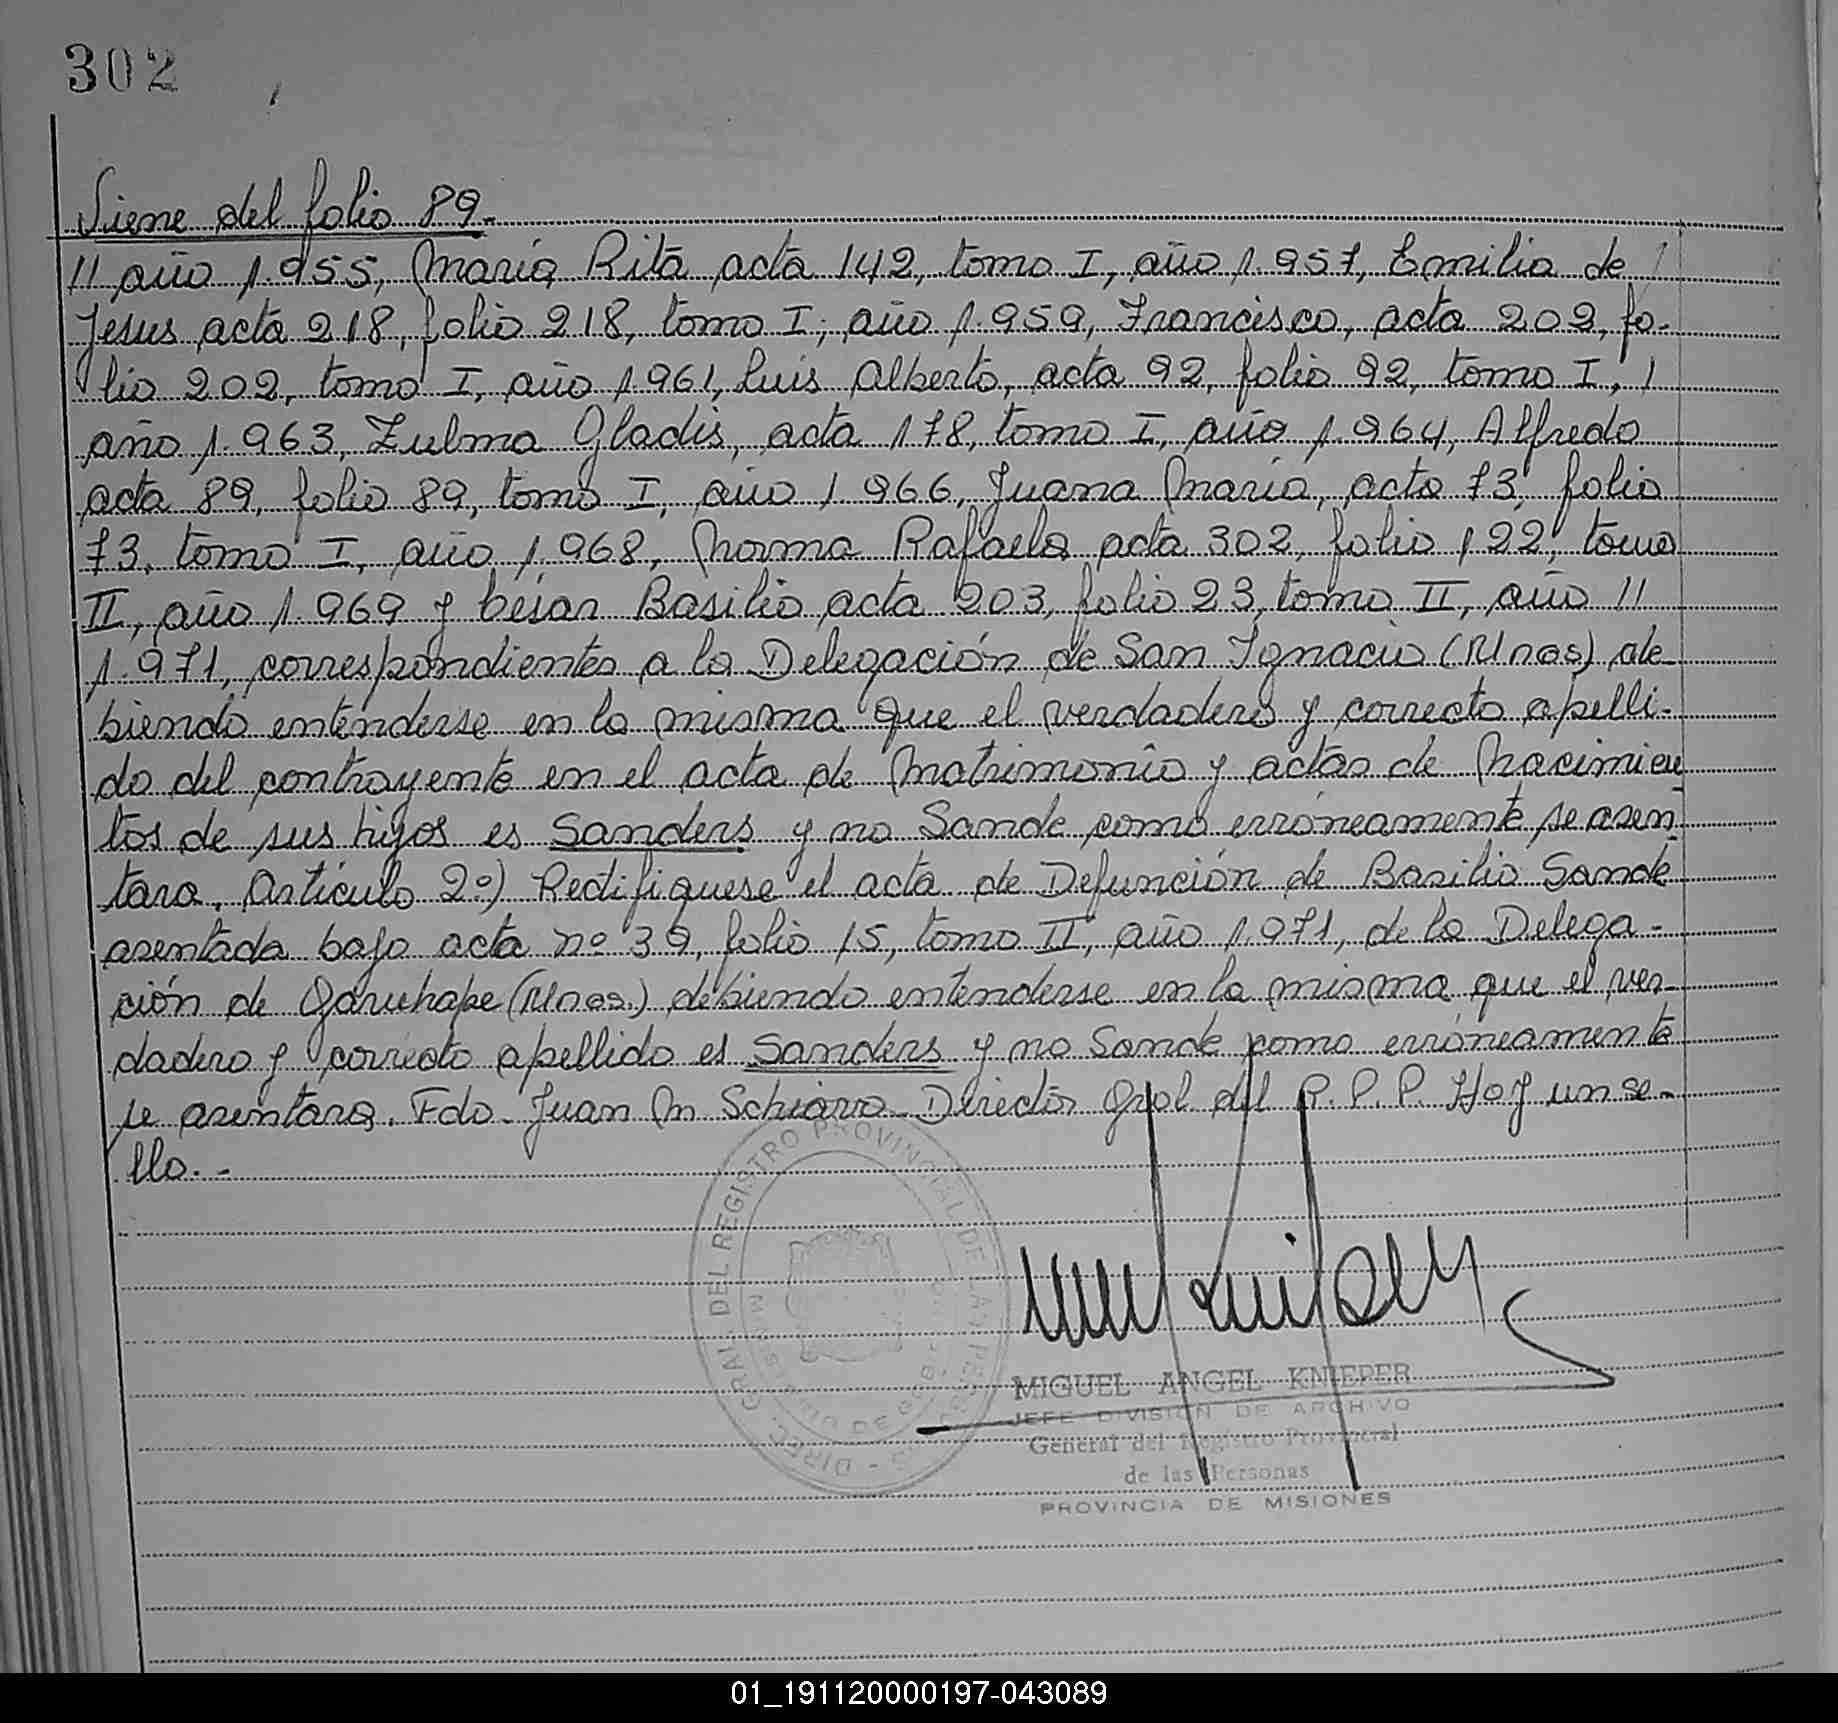 302
Viene del folio 89.-
// año 1.955, María Rita acta 142, tomo I, año 1.957, Emilia de /
Jesus acta 218, folio 218, tomo I, año 1.959, Francisco, acta 202, fo-
lio 202, tomo I, año 1.961, Luis Alberto, acta 92, folio 92, tomo I, /
año 1.963, Zulma Gladis, acta 178, tomo I, año 1.964, Alfredo
acta 89, folio 89, tomo I, año 1.966, Juana María, acta 73, folio
73, tomo I, año 1.968, Norma Rafaela acta 302, folio 122, tomo
II, año 1.969 y Césan Basilio acta 203, folio 23, tomo II, año //
1.971, correspondientes a la Delegación de San Ignacio (Mnes) de-
biendo entenderse en la misma que el verdadero y correcto apelli-
do del contrayente en el acta de Matrimonio y actas de Nacimien
tos de sus hijos es Sanders y no Sande como erróneamente se asen
tara. Artículo 2º) Rectifiquese el acta de Defunción de Basilio Sande
asentada bajo acta nº 39, folio 15, tomo II, año 1.971, de la Delega-
ción de Garuhape (Mnes.) debiendo entenderse en la misma que el ver-
dadero y correcto apellido es Sanders y no Sande como erróneamente
se asentara. Fdo. Juan M Schiavo Director Gral del R.P.P. Hay un se-
llo.-
DIREC. GRAL. DEL REGISTRO PROVINCIAL DE LAS PERSONAS
MIGUEL ANGEL KNIEPER
JEFE DIVISION DE ARCHIVO
General del Registro Provincial
de las Personas
PROVINCIA DE MISIONES
01_191120000197-043089